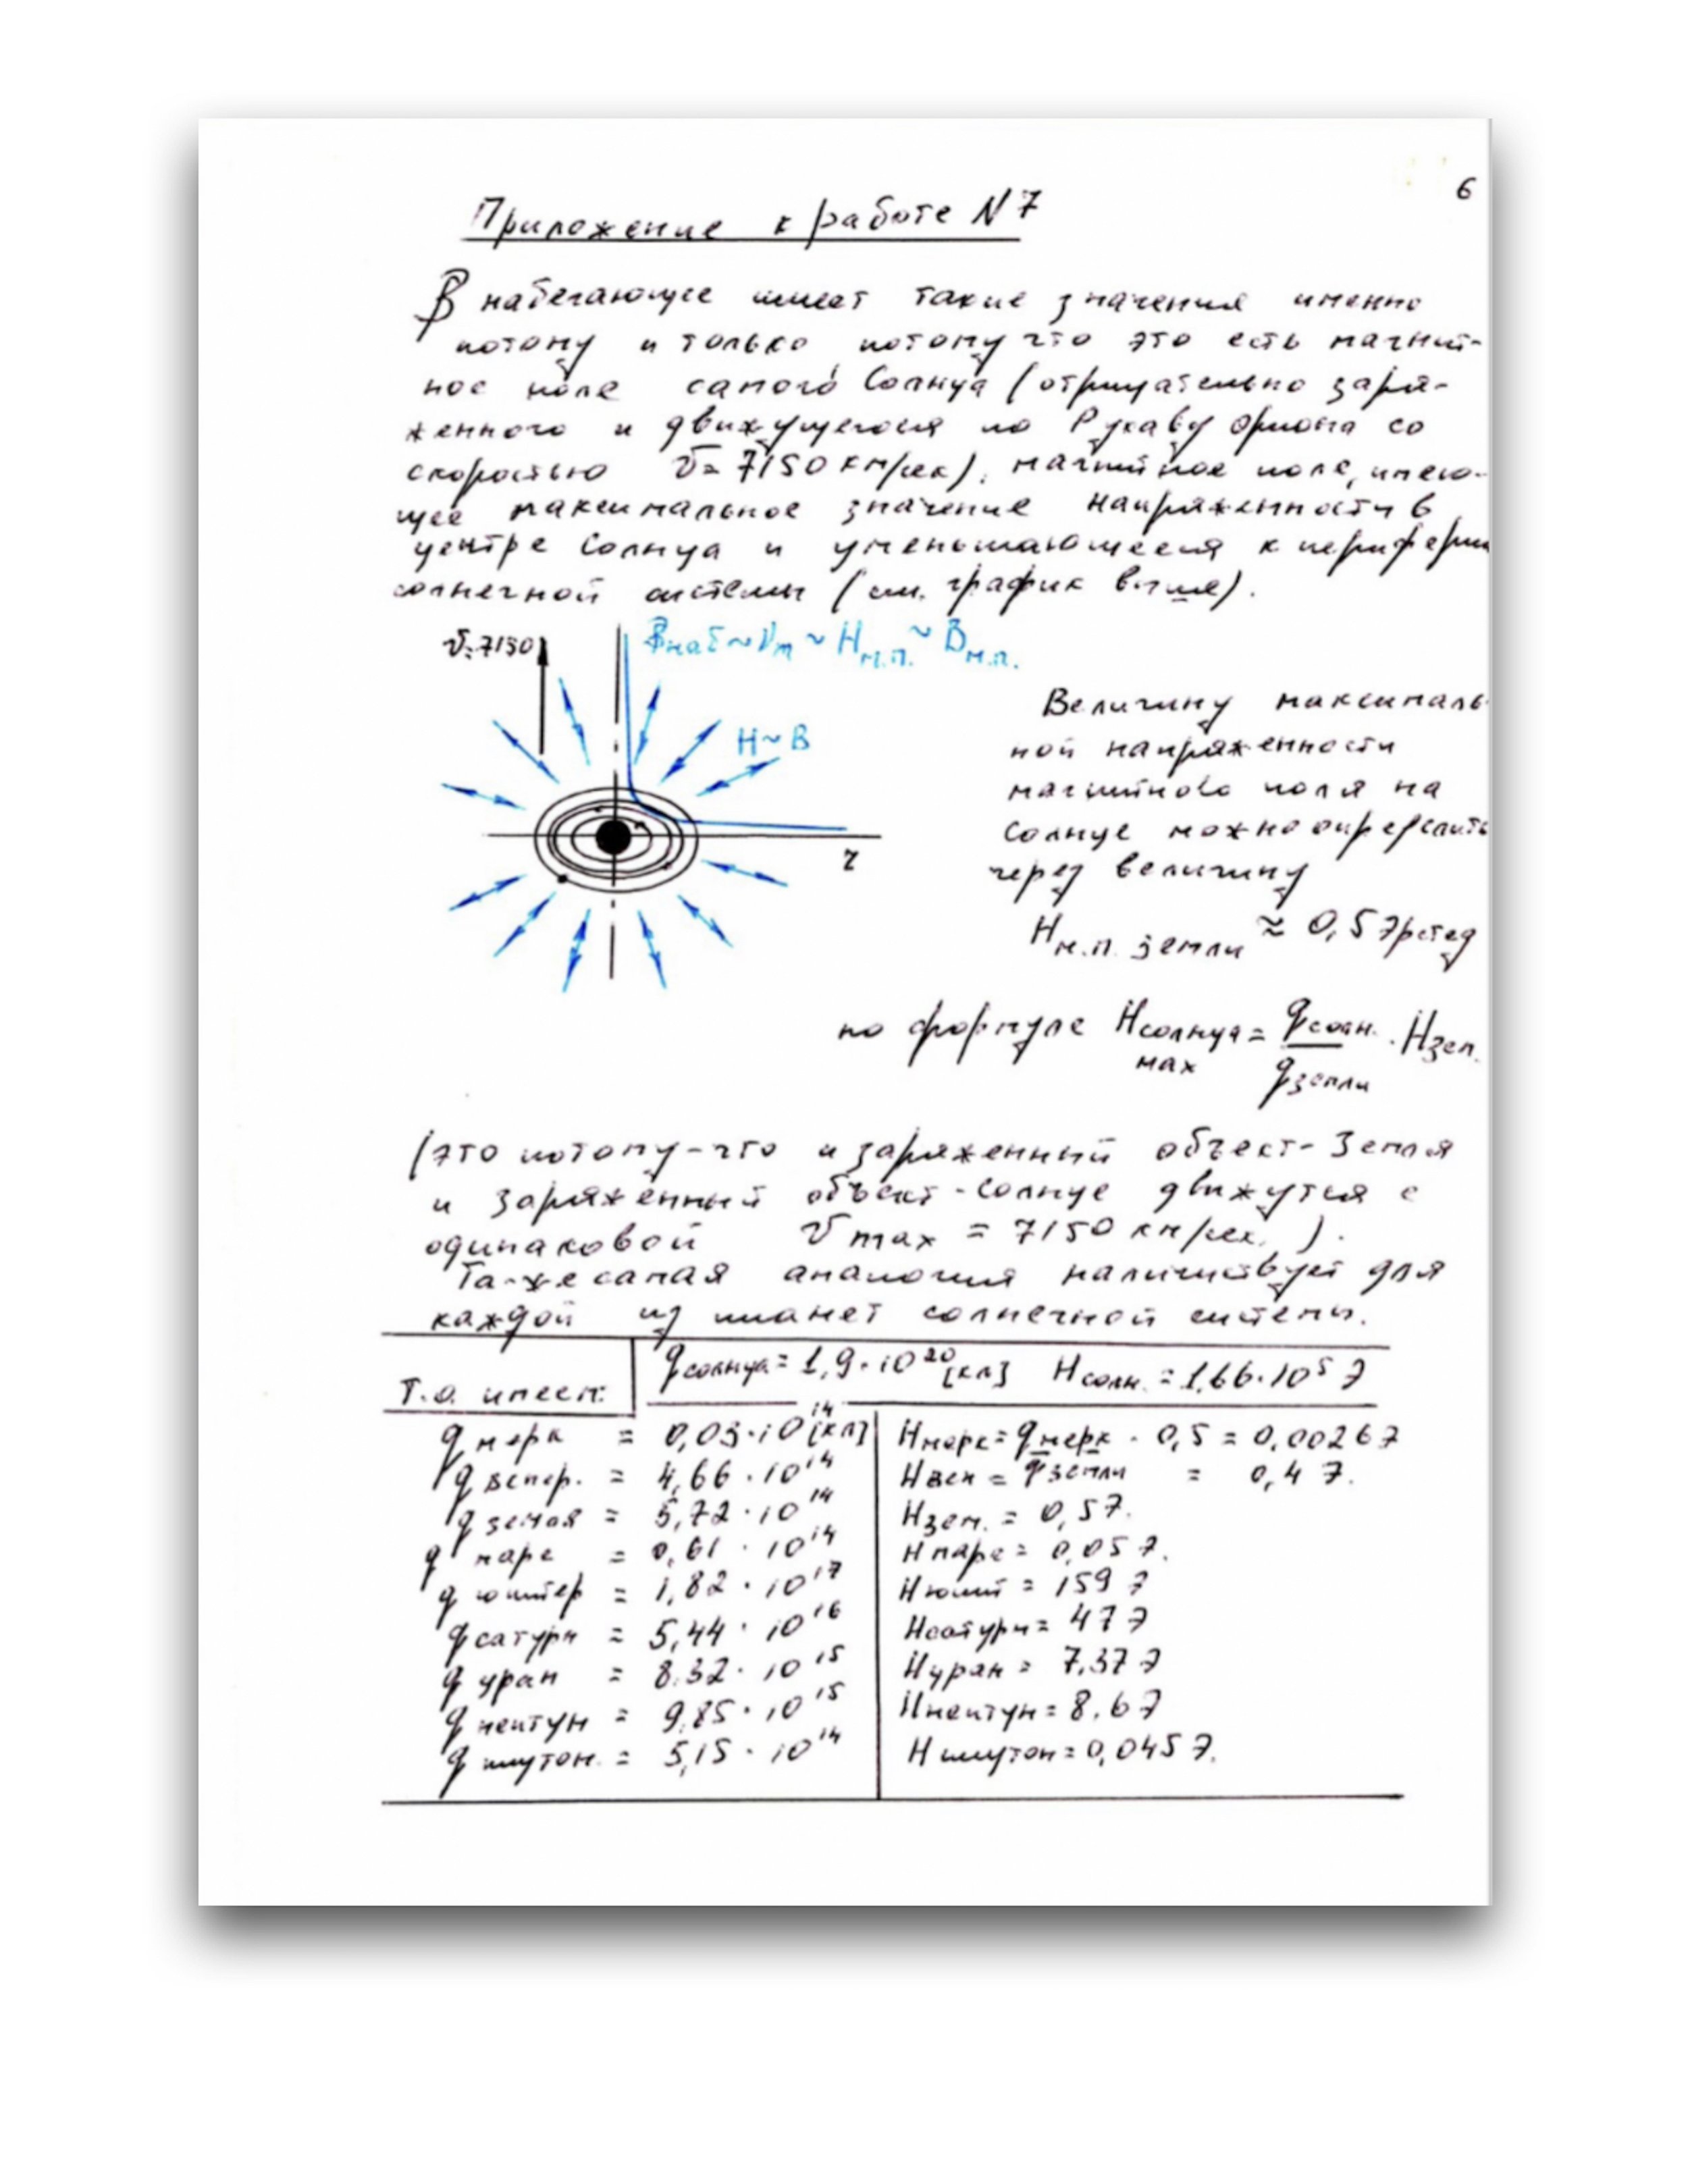 6
Приложение к работе N7
B набегающее имеет такие значения именно
потому и только потому что это есть магнит-
ное поле самого Солнца (отрицательно заря-
женного и движущегося по Рукаву Ориона со
скоростью v = 7150 км/сек), магнитное поле, имею-
щее максимальное значение напряженности в
центре Солнца и уменьшающееся к периферии
солнечной системы (см. график выше).
v=7150
Bнаб~Vm~Hм.п.~Bм.п.
H~B
r
Величину максималь-
ной напряженности
магнитного поля на
Солнце можно определить
через величину
Hм.п. земли ≈ 0,5 Эрстед
по формуле Hсолнца max = qсолн. / qземли · Hзем.
(это потому-что и заряженный объект-Земля
и заряженный объект-Солнце движутся с
одинаковой vmax = 7150 км/сек.).
Та-же самая аналогия наличиствует для
каждой из планет солнечной системы.
Т.о. имеем: qсолнца = 1,9·10²⁰ [кл] Hсолн. = 1,66·10⁵ Э
qмерк = 0,03·10¹⁴ [кл] Hмерк = qмерк / qземли · 0,5 = 0,0026 Э
qвенер. = 4,66·10¹⁴ Hвен = = 0,4 Э.
qземля = 5,72·10¹⁴ Hзем. = 0,5 Э.
qмарс = 0,61·10¹⁴ Hмарс = 0,05 Э.
qюпитер = 1,82·10¹⁷ Hюпит = 159 Э
qсатурн = 5,44·10¹⁶ Hсатурн = 47 Э
qуран = 8.32·10¹⁵ Hуран = 7,37 Э
qнептун = 9,85·10¹⁵ Hнептун = 8.6 Э
qплутон. = 5,15·10¹⁴ Hплутон = 0,045 Э.